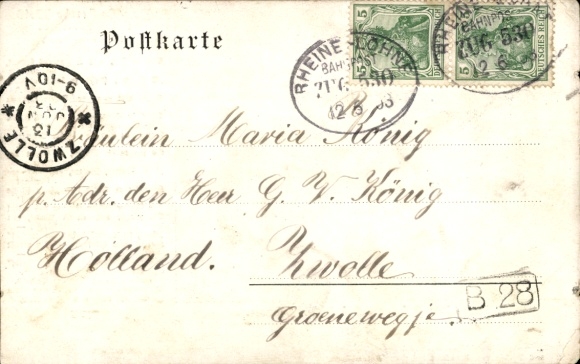 Postkarte
5 5
DEUTSCHES REICH
RHEINE-LÖHNE
BAHNPOST
ZUG 530
12 6 03
RHEINE
BAHNPOST
ZUG 530
12 6
ZWOLLE
13 JUN 03
9-10V
Fräulein Maria König
p. Adr. den Heer G. V. König
Holland. Zwolle
Groenewegje.
B 28